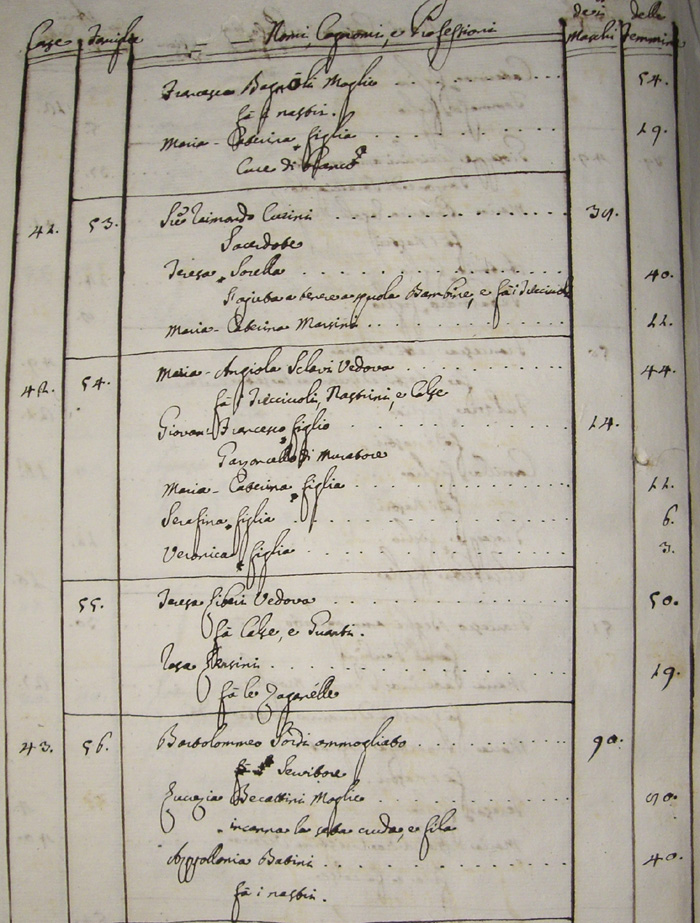 dei delle
Case Famiglie Nomi, Cognomi, e Professioni Maschi Femmine
Francesca Bagnoli Moglie 54.
fà i nastrin.
Maria-Caterina figlia 19.
Cuce di
41. 53. Raimondo Cusini 39.
Sacerdote
Teresa Sorella 40.
Bambine, e fà i Trecciuoli
Maria-Caterina Marsini 22.
42. 54. Maria-Angiola Sclavi Vedova 44.
fà i Trecciuoli, Nastrini, e Calse
Giovan Francesco figlio 14.
Garzoncello di Muratore
Maria-Caterina figlia 11.
Serafina figlia 6.
Veronica figlia 3.
55. Teresa Vedova 50.
fà Calse, e Guanti.
Rosa 19.
fà le Zagarelle
43. 56. Bartolommeo Sordi ammogliato 90.
Servitore
Becattini Moglie 50.
incanna la seta cruda, e fila
Appollonia Babini 40.
fà i nastrin.